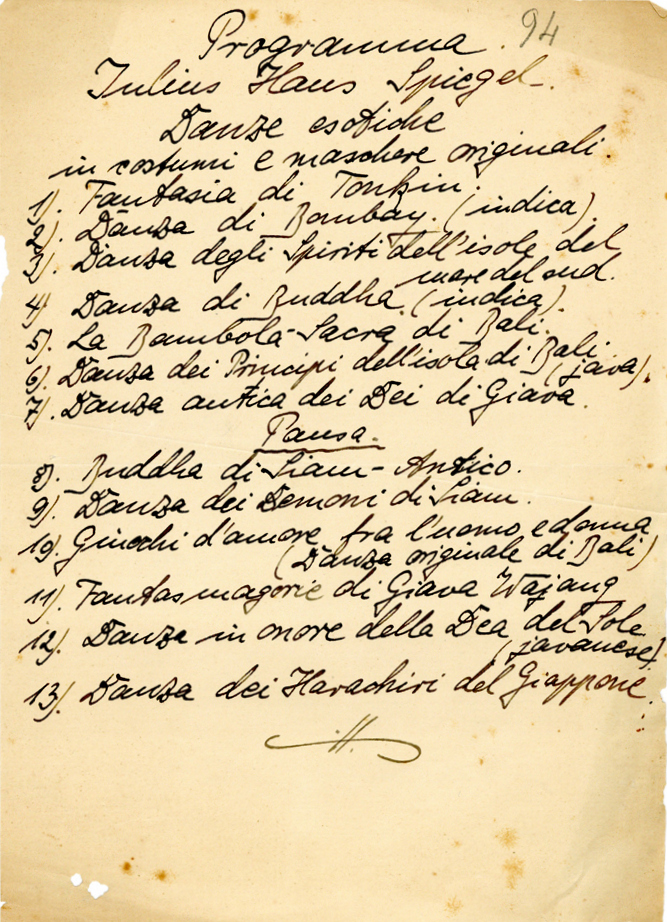 Programma. 94
Julius Hans Spiegel.
Danze esotiche
in costumi e maschere originali.
1). Fantasia di Tonkin.
2). Danza di Bombay. (indica).
3). Danza degli Spiriti dell'isole del
mare del sud.
4) Danza di Buddha. (indica).
5). La Bambola-Sacra di Bali.
6). Danza dei Principi dell'isola di Bali
(java).
7). Danza antica dei Dei di Giava.
Pausa.
8). Buddha di Siam-Antico.
9). Danza dei Demoni di Siam.
10). Giuochi d'amore fra l'uomo e donna
(Danza originale di Bali)
11). Fantasmagorie di Giava Wajang
12). Danza in onore della Dea del Sole
(javanese).
13). Danza dei Harachiri del Giappone.